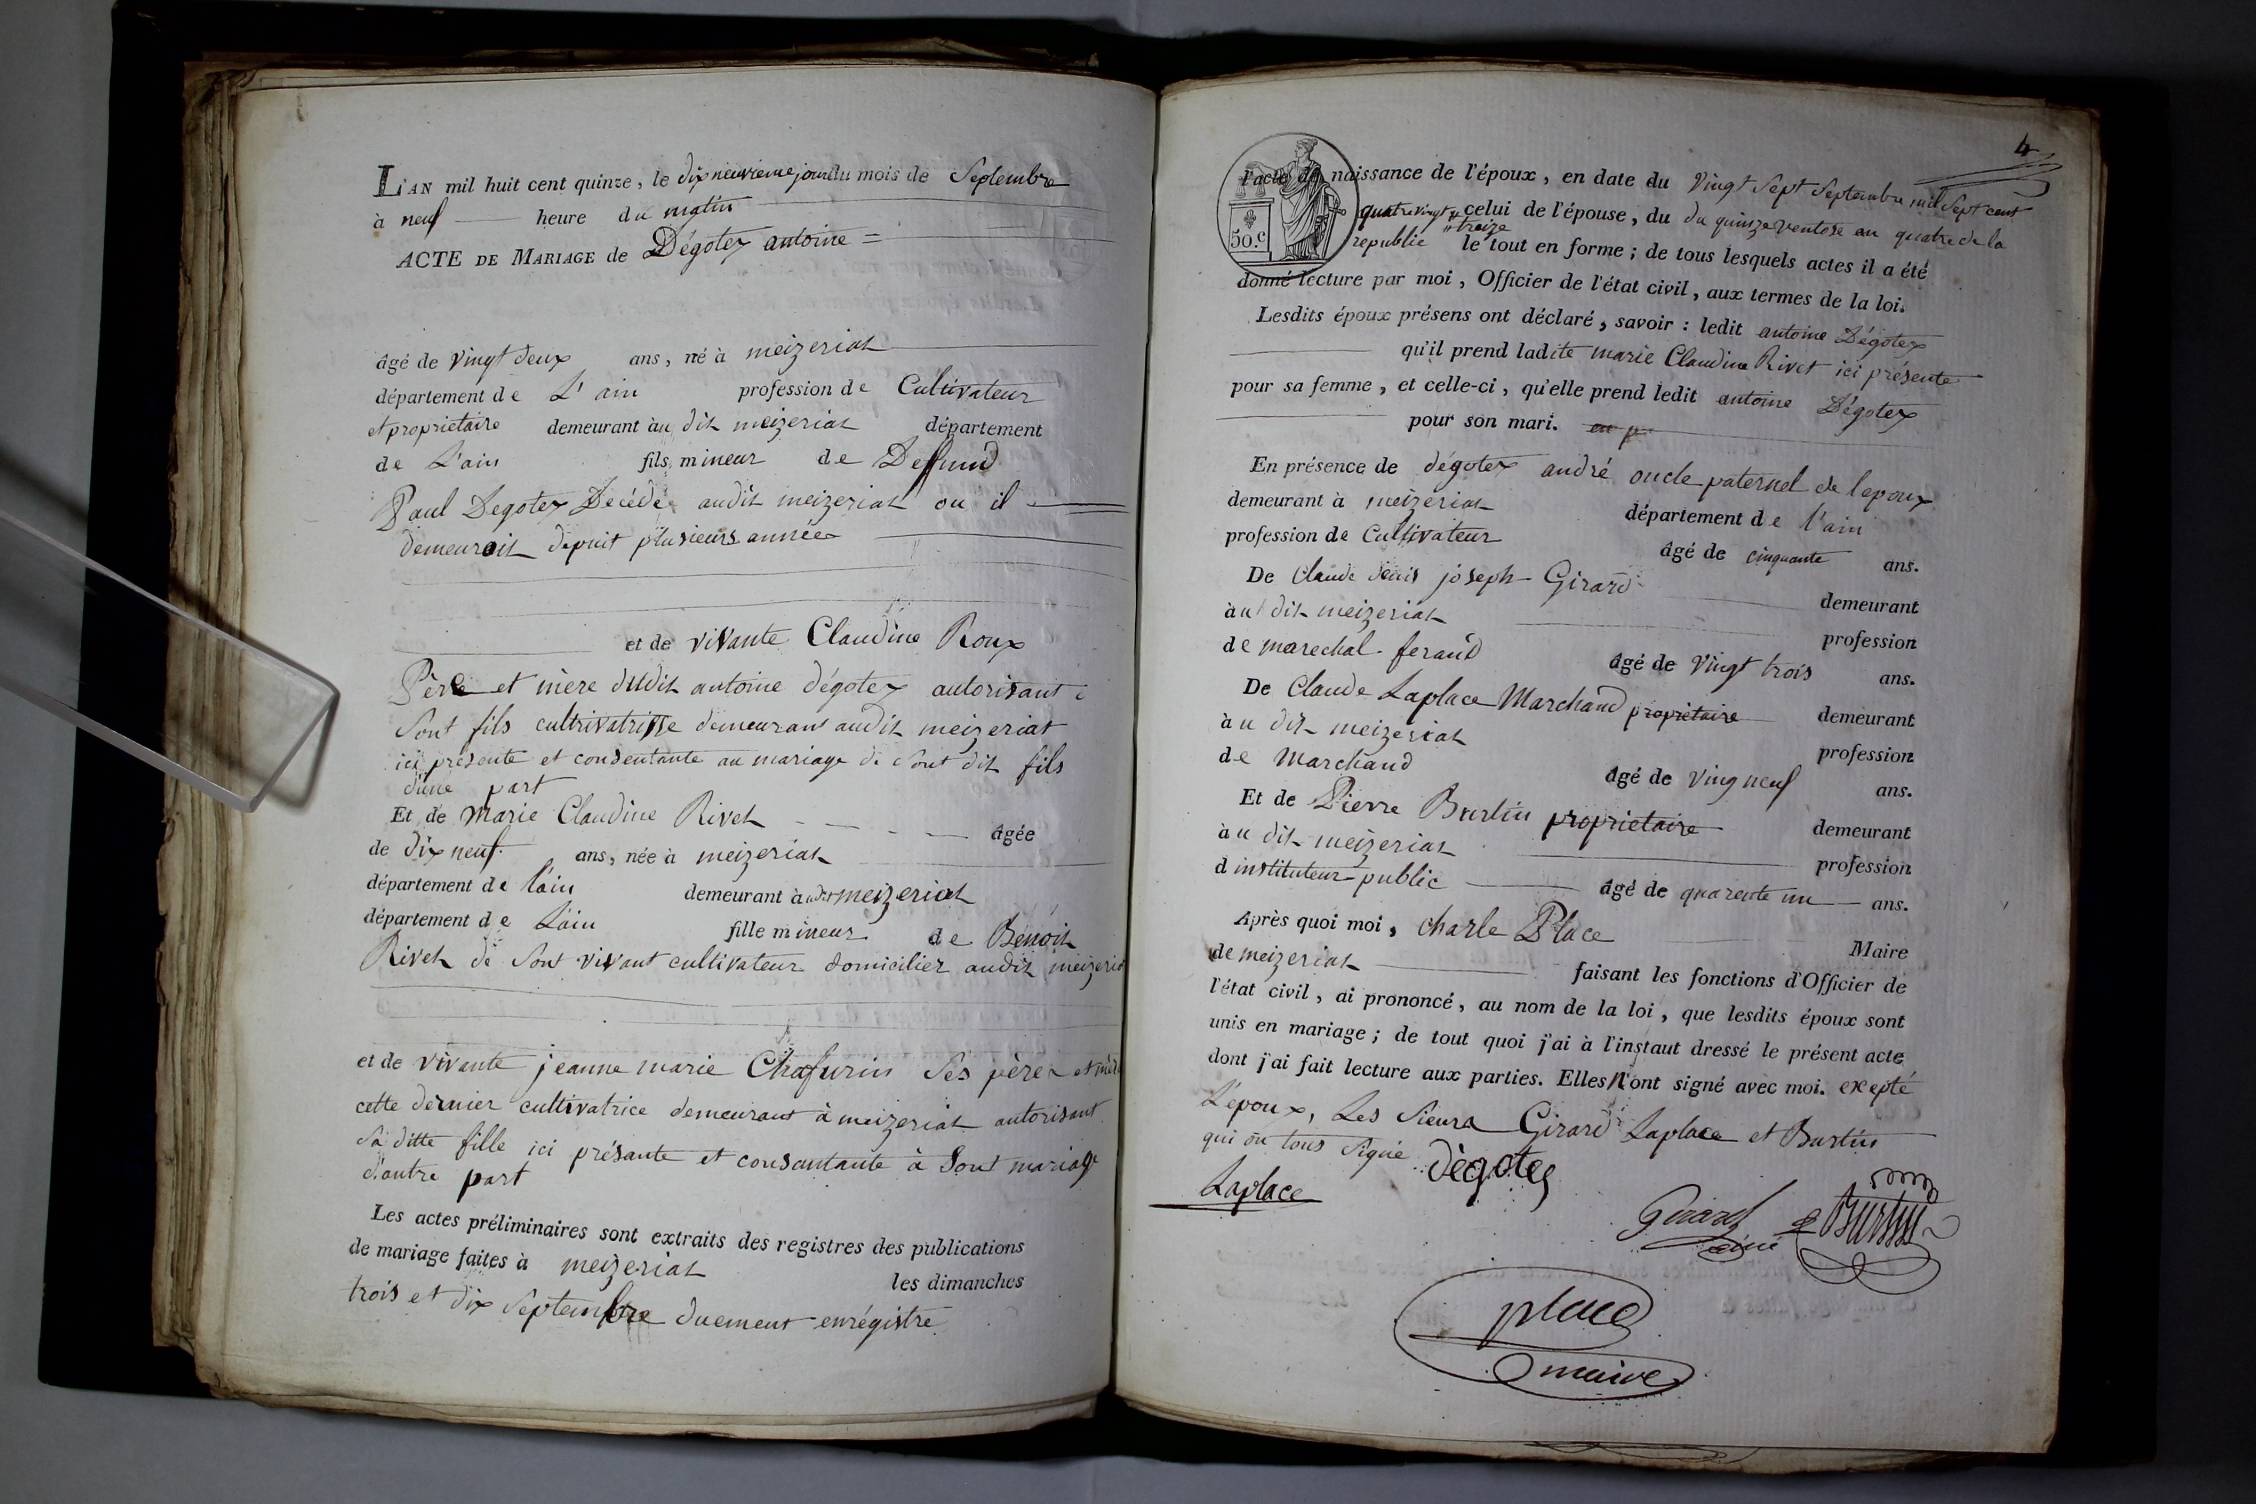 L'AN mil huit cent quinze, le dix neuvieme jour du mois de Septembre
à neuf heure du matin
ACTE DE MARIAGE de Dégotex antoine =
âgé de vingt deux ans, né à meizeriat
département de L'ain profession de Cultivateur
et proprietaire demeurant àu dit meizeriat département
de L'ain fils mineur de Deffund
Paul Degotex Décédé audit meizeriat ou il
demeuroit depuit plusieurs année
et de vivante Claudine Roux
Père et mère dudit antoine dégotex autorisant
Sont fils cultrivatrisse demeurant audit meizeriat
ici présente et consentante au mariage de Sont dit fils
d'une part
Et de Marie Claudine Rivet âgée
de dix neuf ans, née à meizeriat
département de l'ain demeurant à udit meizeriat
département de L'ain fille mineur de Benoit
Rivet de Sont vivant cultivateur domicilier audit meizeriat
et de vivante jeanne marie Chafurin Ses père et mère
cette dernier cultivatrice demeurant à meizeriat autorisant
Sa ditte fille ici présante et consantante à Sont mariage
d'autre part
Les actes préliminaires sont extraits des registres des publications
de mariage faites à meizeriat les dimanches
trois et dix Septembre duement enrégistre
4
50.c
l'acte de naissance de l'époux, en date du vingt Sept Septembre mil Sept cent
quatrevingt treize celui de l'épouse, du du quinze ventose an quatre de la
republic le tout en forme ; de tous lesquels actes il a été
donné lecture par moi, Officier de l'état civil, aux termes de la loi.
Lesdits époux présens ont déclaré, savoir : ledit antoine Dégotex
qu'il prend ladite marie Claudine Rivet ici présente
pour sa femme, et celle-ci, qu'elle prend ledit antoine Dégotex
pour son mari.
En présence de dégotex andré oncle paternel de lepoux
demeurant à meizeriat département de l'ain
profession de Cultivateur âgé de cinquante ans.
De Claude denis joseph Girard demeurant
àut dit meizeriat profession
de marechal ferand âgé de vingt trois ans.
De Claude Laplace Marchand propriétaire demeurant
àu dit meizeriat profession
de Marchand âgé de vingneuf ans.
Et de Pierre Burtin proprietaire demeurant
àu dit meizeriat profession
d instituteur public âgé de quarente un ans.
Après quoi moi, charle Place Maire
de meizeriat faisant les fonctions d'Officier de
l'état civil, ai prononcé, au nom de la loi, que lesdits époux sont
unis en mariage ; de tout quoi j'ai à l'instaut dressé le présent acte
dont j'ai fait lecture aux parties. Elles n'ont signé avec moi. excepté
L'epoux, Les Sieurs Girard Laplace et Burtin
qui on tous Signé dègotex
Laplace
Girard ainé Burtin
place
maire